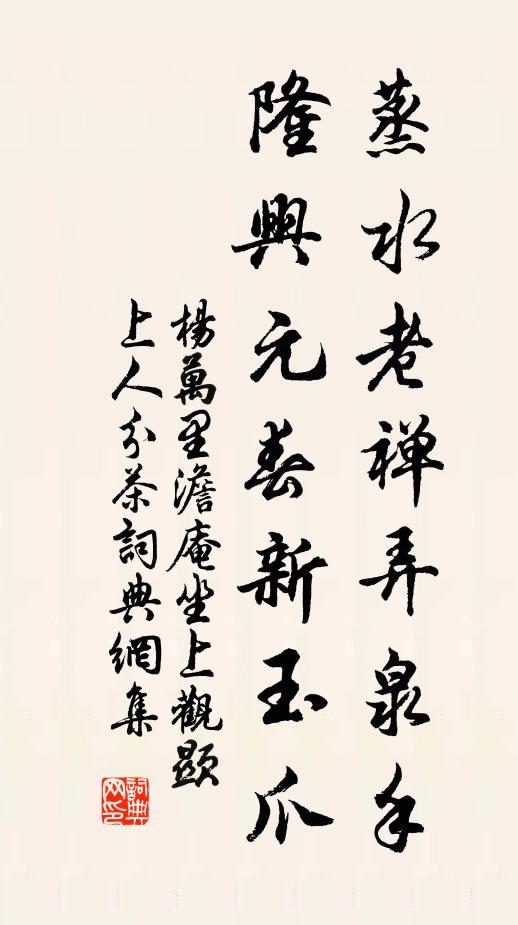 蒸水老禅弄泉手
隆興元春新玉爪
楊萬里澹庵坐上觀顯
上人分茶詞典網集
詞典网印